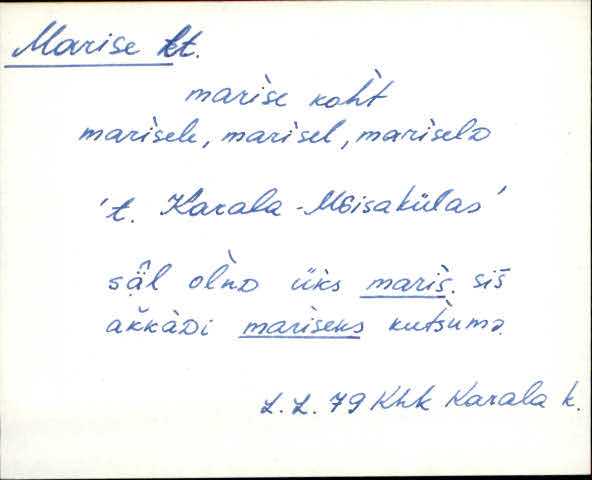 Marise kt.
marise koht
marisele, marisel, mariselᴅ
't. Karala-Mõisakülas'
säl olnᴅ üks maris. siš
akkàᴅi mariseks kutsuma.
L. L. 79 Khk Karala k.